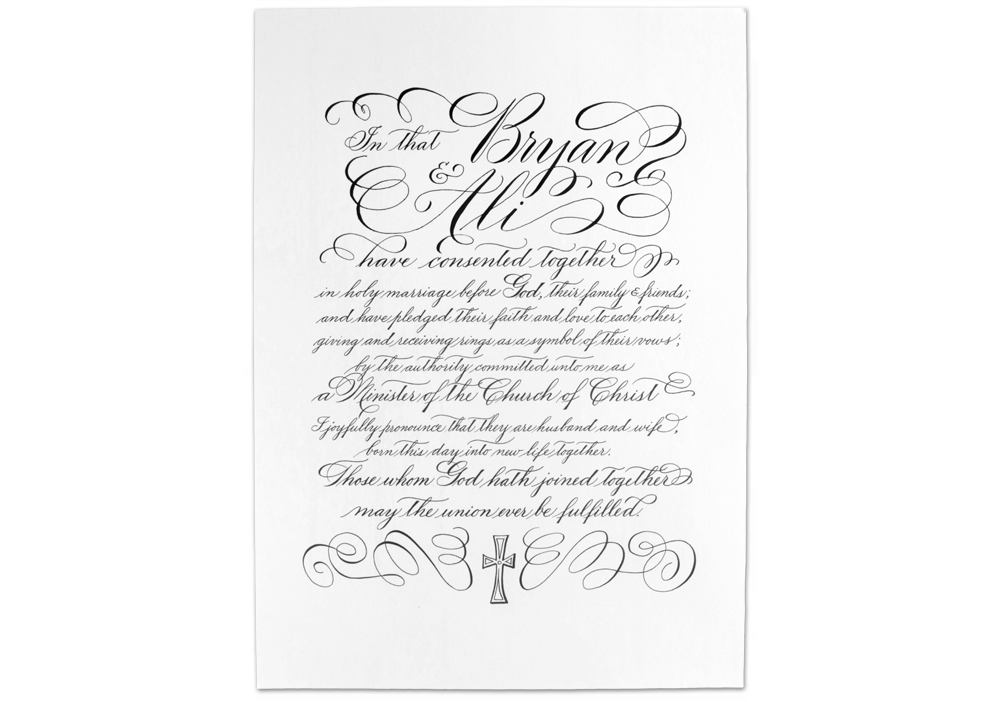 In that Bryan
& Ali
have consented together
in holy marriage before God, their family & friends;
and have pledged their faith and love to each other,
giving and receiving rings as a symbol of their vows;
by the authority committed unto me as
a Minister of the Church of Christ
I joyfully pronounce that they are husband and wife,
born this day into new life together.
Those whom God hath joined together
may the union ever be fulfilled.